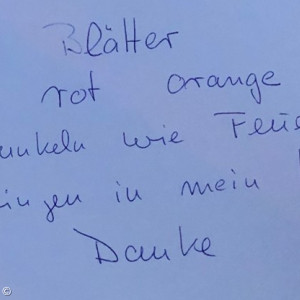 Blätter
rot orange
unkeln wie Feue
ingen in mein
Danke
©